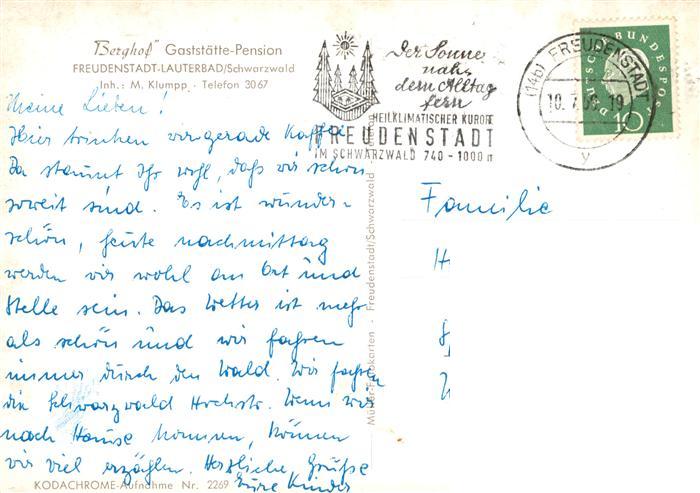 "Berghof" Gaststätte-Pension
FREUDENSTADT-LAUTERBAD/Schwarzwald
Inh.: M. Klumpp · Telefon 3067
Meine Lieben!
Hier trinken wir gerade Kaffee
Da staunt Ihr wohl, daß wir schon
soweit sind. Es ist wunder-
schön, heute nachmittag
werden wir wohl am Ort und
Stelle sein. Das Wetter ist mehr
als schön und wir fahren
immer durch den Wald. Wir fahren
die Schwarzwald Hochstr. Wenn wir
nach Hause kommen, können
wir viel erzählen. Herzliche Grüße
Eure Kinder
KODACHROME-Aufnahme Nr. 2269
Freudenstadt/Schwarzwald
Der Sonne
nah,
dem Alltag
fern
HEILKLIMATISCHER KURORT
FREUDENSTADT
IM SCHWARZWALD 740 - 1000 m
(14b) FREUDENSTADT
10.7.
19
y
DEUTSCHE BUNDESPOST
10
Familie
H